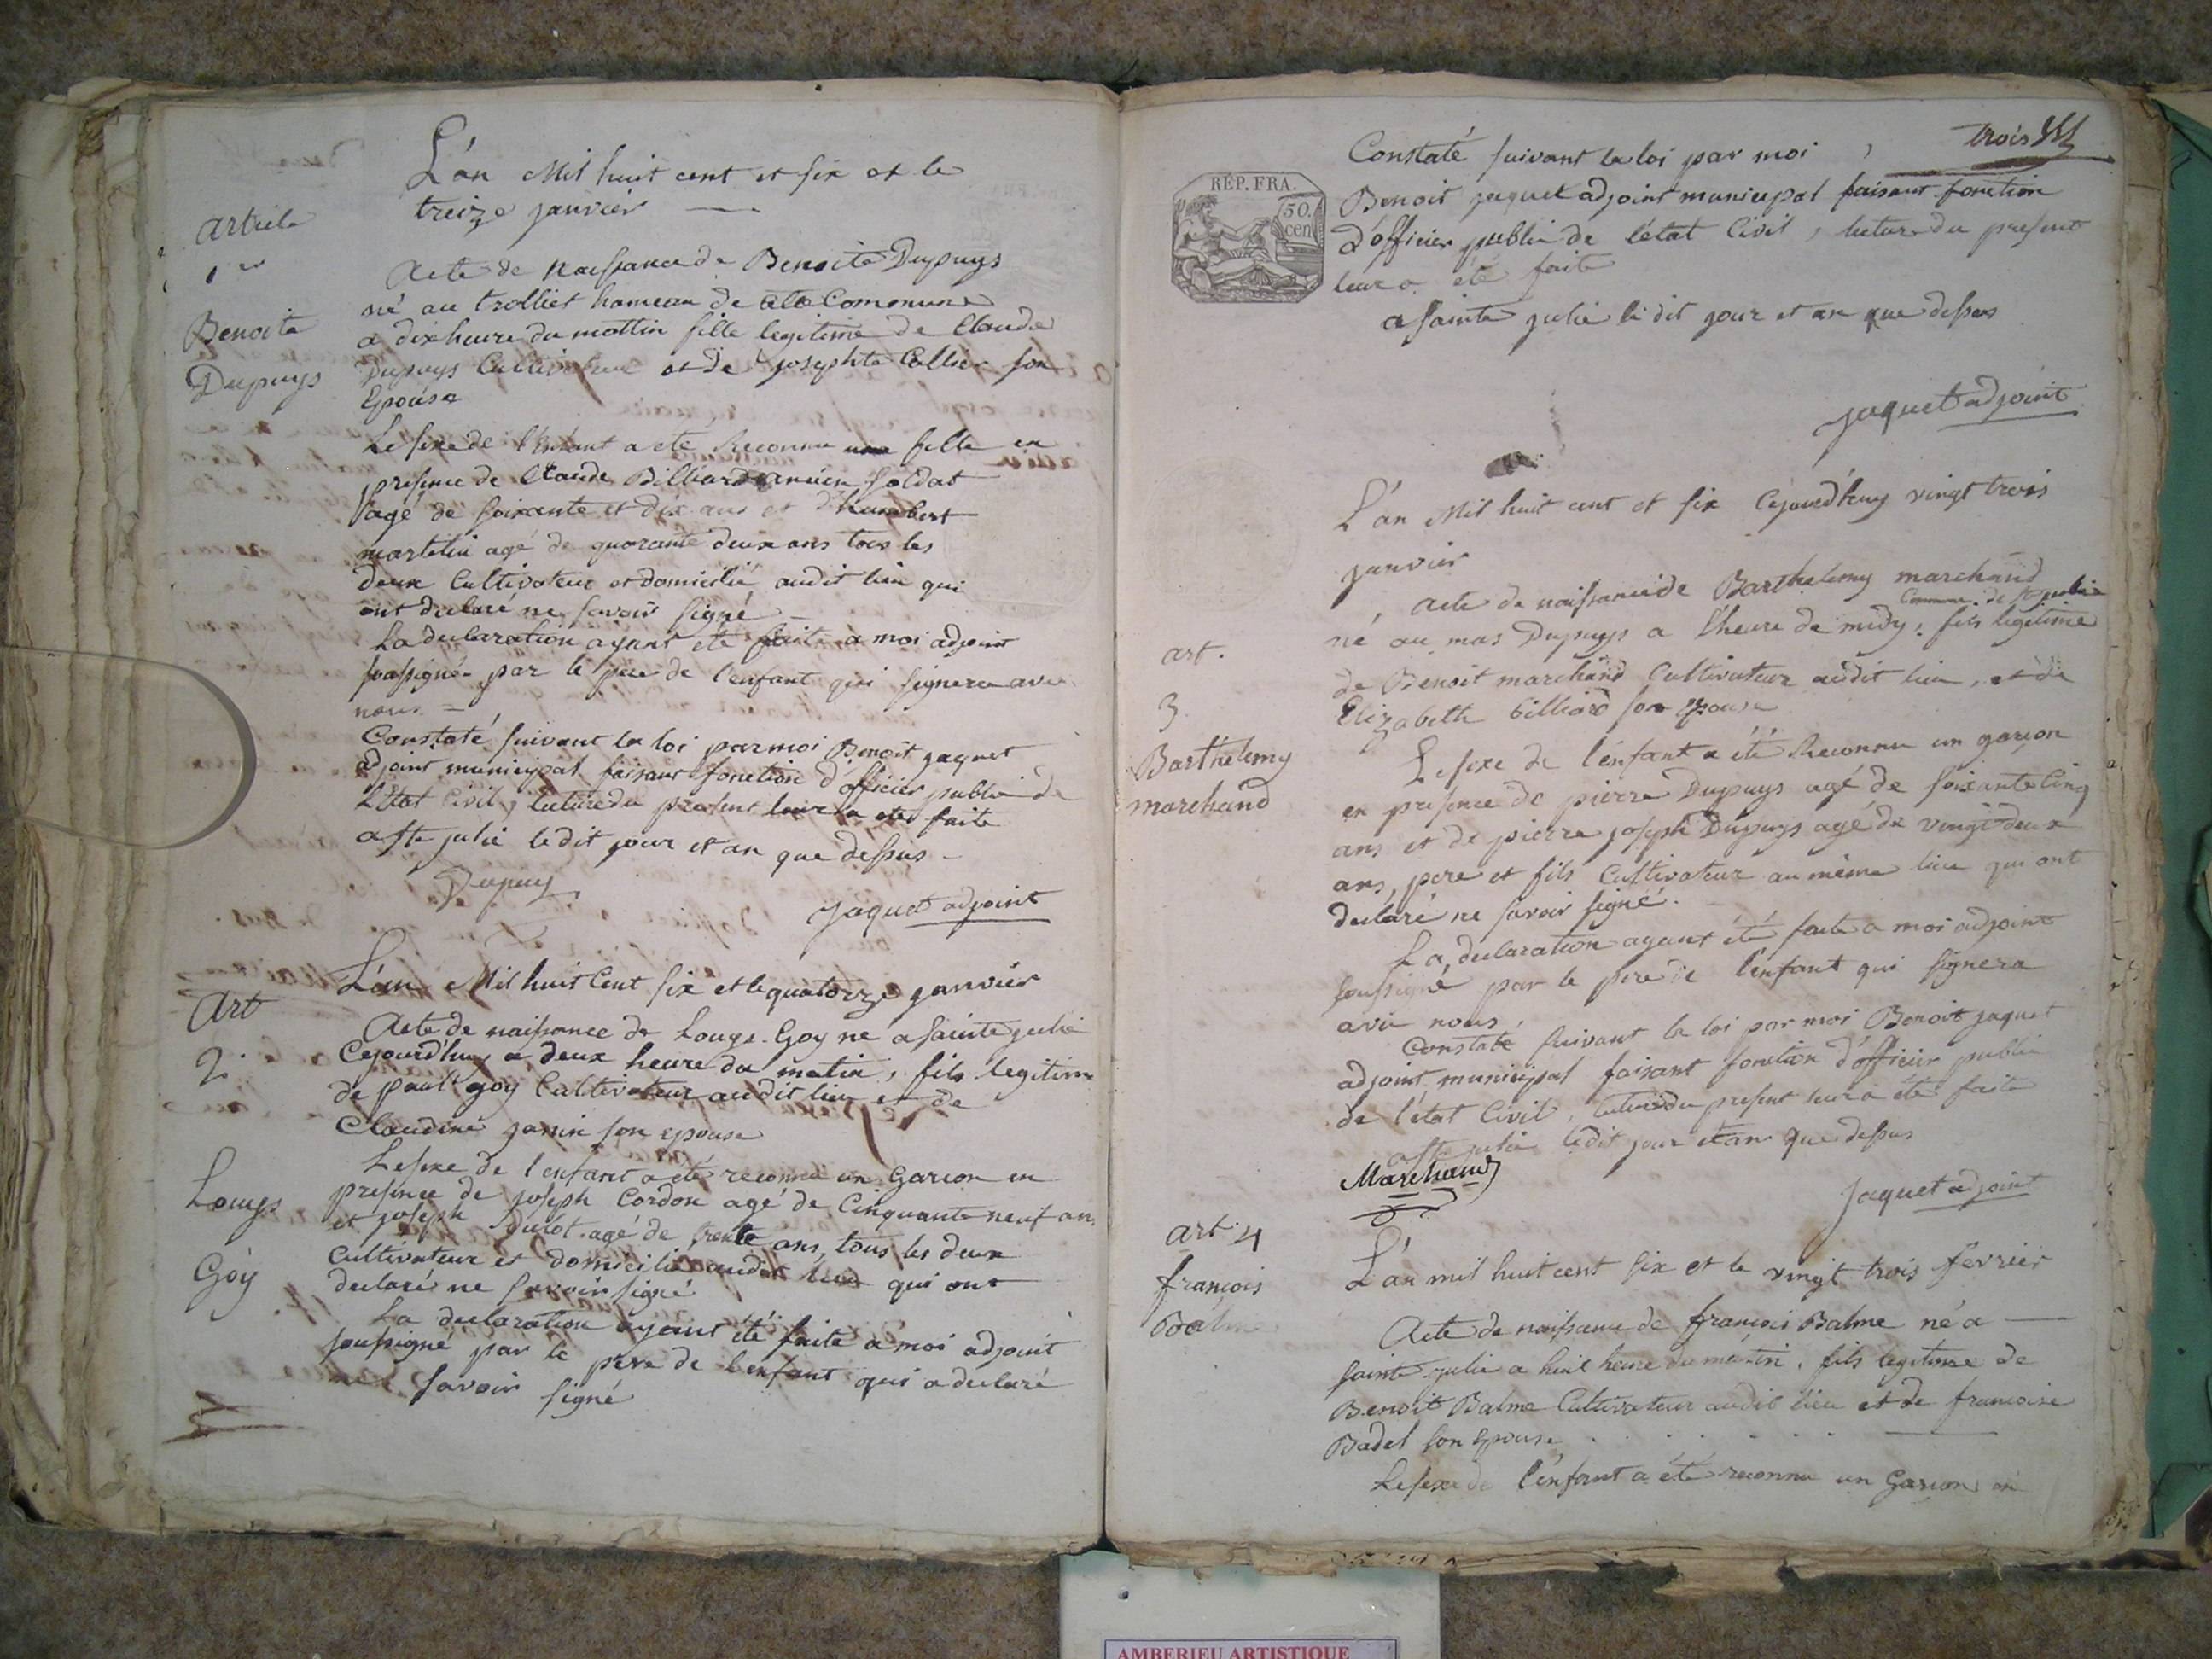 L'án Mil huit cent et six et le
treize janviér
article
1er
Benoite
Dupuys
Acte de naissance de Benoite Dupuys
né au trolliet hameau de cete Commune
a dix heure du mattin fille legitime de Claude
Dupuys Cultivateur et de josephte Collier son
Epouse
Le sexe de l'enfant a eté Reconnu une fille en
presence de Claude Billiard ancien soldat
agé de soixante et dix ans et d'humbert
martelin agé de quorante deux ans tous les
deux Cultivateur et domicilié audit lieu qui
ont declaré ne savoir signé
La declaration ayant été faite a moi adjoint
sousigné par le pere de l'enfant qui signera avec
nous
Constaté suivant la loi par moi Benoit jaquet
adjoint municipal faisant fonction d'officier public de
L'état Civil, lecture du present leur a eté faite
a ste julie le dit jour et an que dessus
Dupuy
jaquet adjoint
L'án Mil huit Cent six et le quatorze janviér
Art
2.
Louys
Goÿ
Acte de naissance de Louys Goy né a sainte julie
Cejourd'huy a deux heure du matin, fils legitime
de paul goy Cultivateur audit lieu et de
Claudine janin son epouse
Le sexe de l'enfant a été reconnu un Garcon en
presence de joseph Cordon agé de Cinquante neuf ans
et joseph dulot agé de trente ans, tous les deux
Cultivateur et domicilié audit lieu qui ont
declaré ne savoir signé
La declaration ayant été faite a moi adjoint
soussigné par le pere de l'enfant qui a declaré
ne savoir signé
trois
RÉP. FRA.
50.
cen
Constaté suivant la loi par moi
Benoit jaquet adjoint municipal faisant fonction
d'officier public de l'état Civil, lecture du present
leur a été faite
a sainte julie le dit jour et an que dessus
jaquet adjoint
L'án Mil huit cent et six Cejourd'huy vingt trois
janvier
art.
3.
Barthelemy
marchand
acte de naissance de Barthelemy marchand
Commune de ste julie
né au mas Dupuys a l'heure de midy, fils legitime
de Benoit marchand Cultivateur audit lieu, et de
Elizabeth billiard son epouse
Le sexe de l'enfant a été Reconnu un garçon
en presence de pierre Dupuys agé de soixante Cinq
ans et de pierre joseph Dupuys agé de vingt deux
ans, pere et fils Cultivateur au même lieu qui ont
declaré ne savoir signé.
La declaration ayant été faite a moi adjoint
soussigné par le pere de l'enfant qui signera
avec nous
Constaté suivant la loi par moi Benoit jaquet
adjoint municipal faisant fonction d'officier public
de l'état Civil, lecture du present leur a été faite
a ste julie le dit jour et an que dessus
Marchand
Jaquet adjoint
art. 4
françois
Balme
L'án mil huit cent six et le vingt trois fevrier
Acte de naissance de françois Balme né a
sainte julie a huit heure du matin, fils legitime de
Benoit Balme Cultivateur audit lieu et de francoise
Badet son Epouse
Le sexe de l'enfant a été reconnu un Garcon en
AMBERIEU ARTISTIQUE